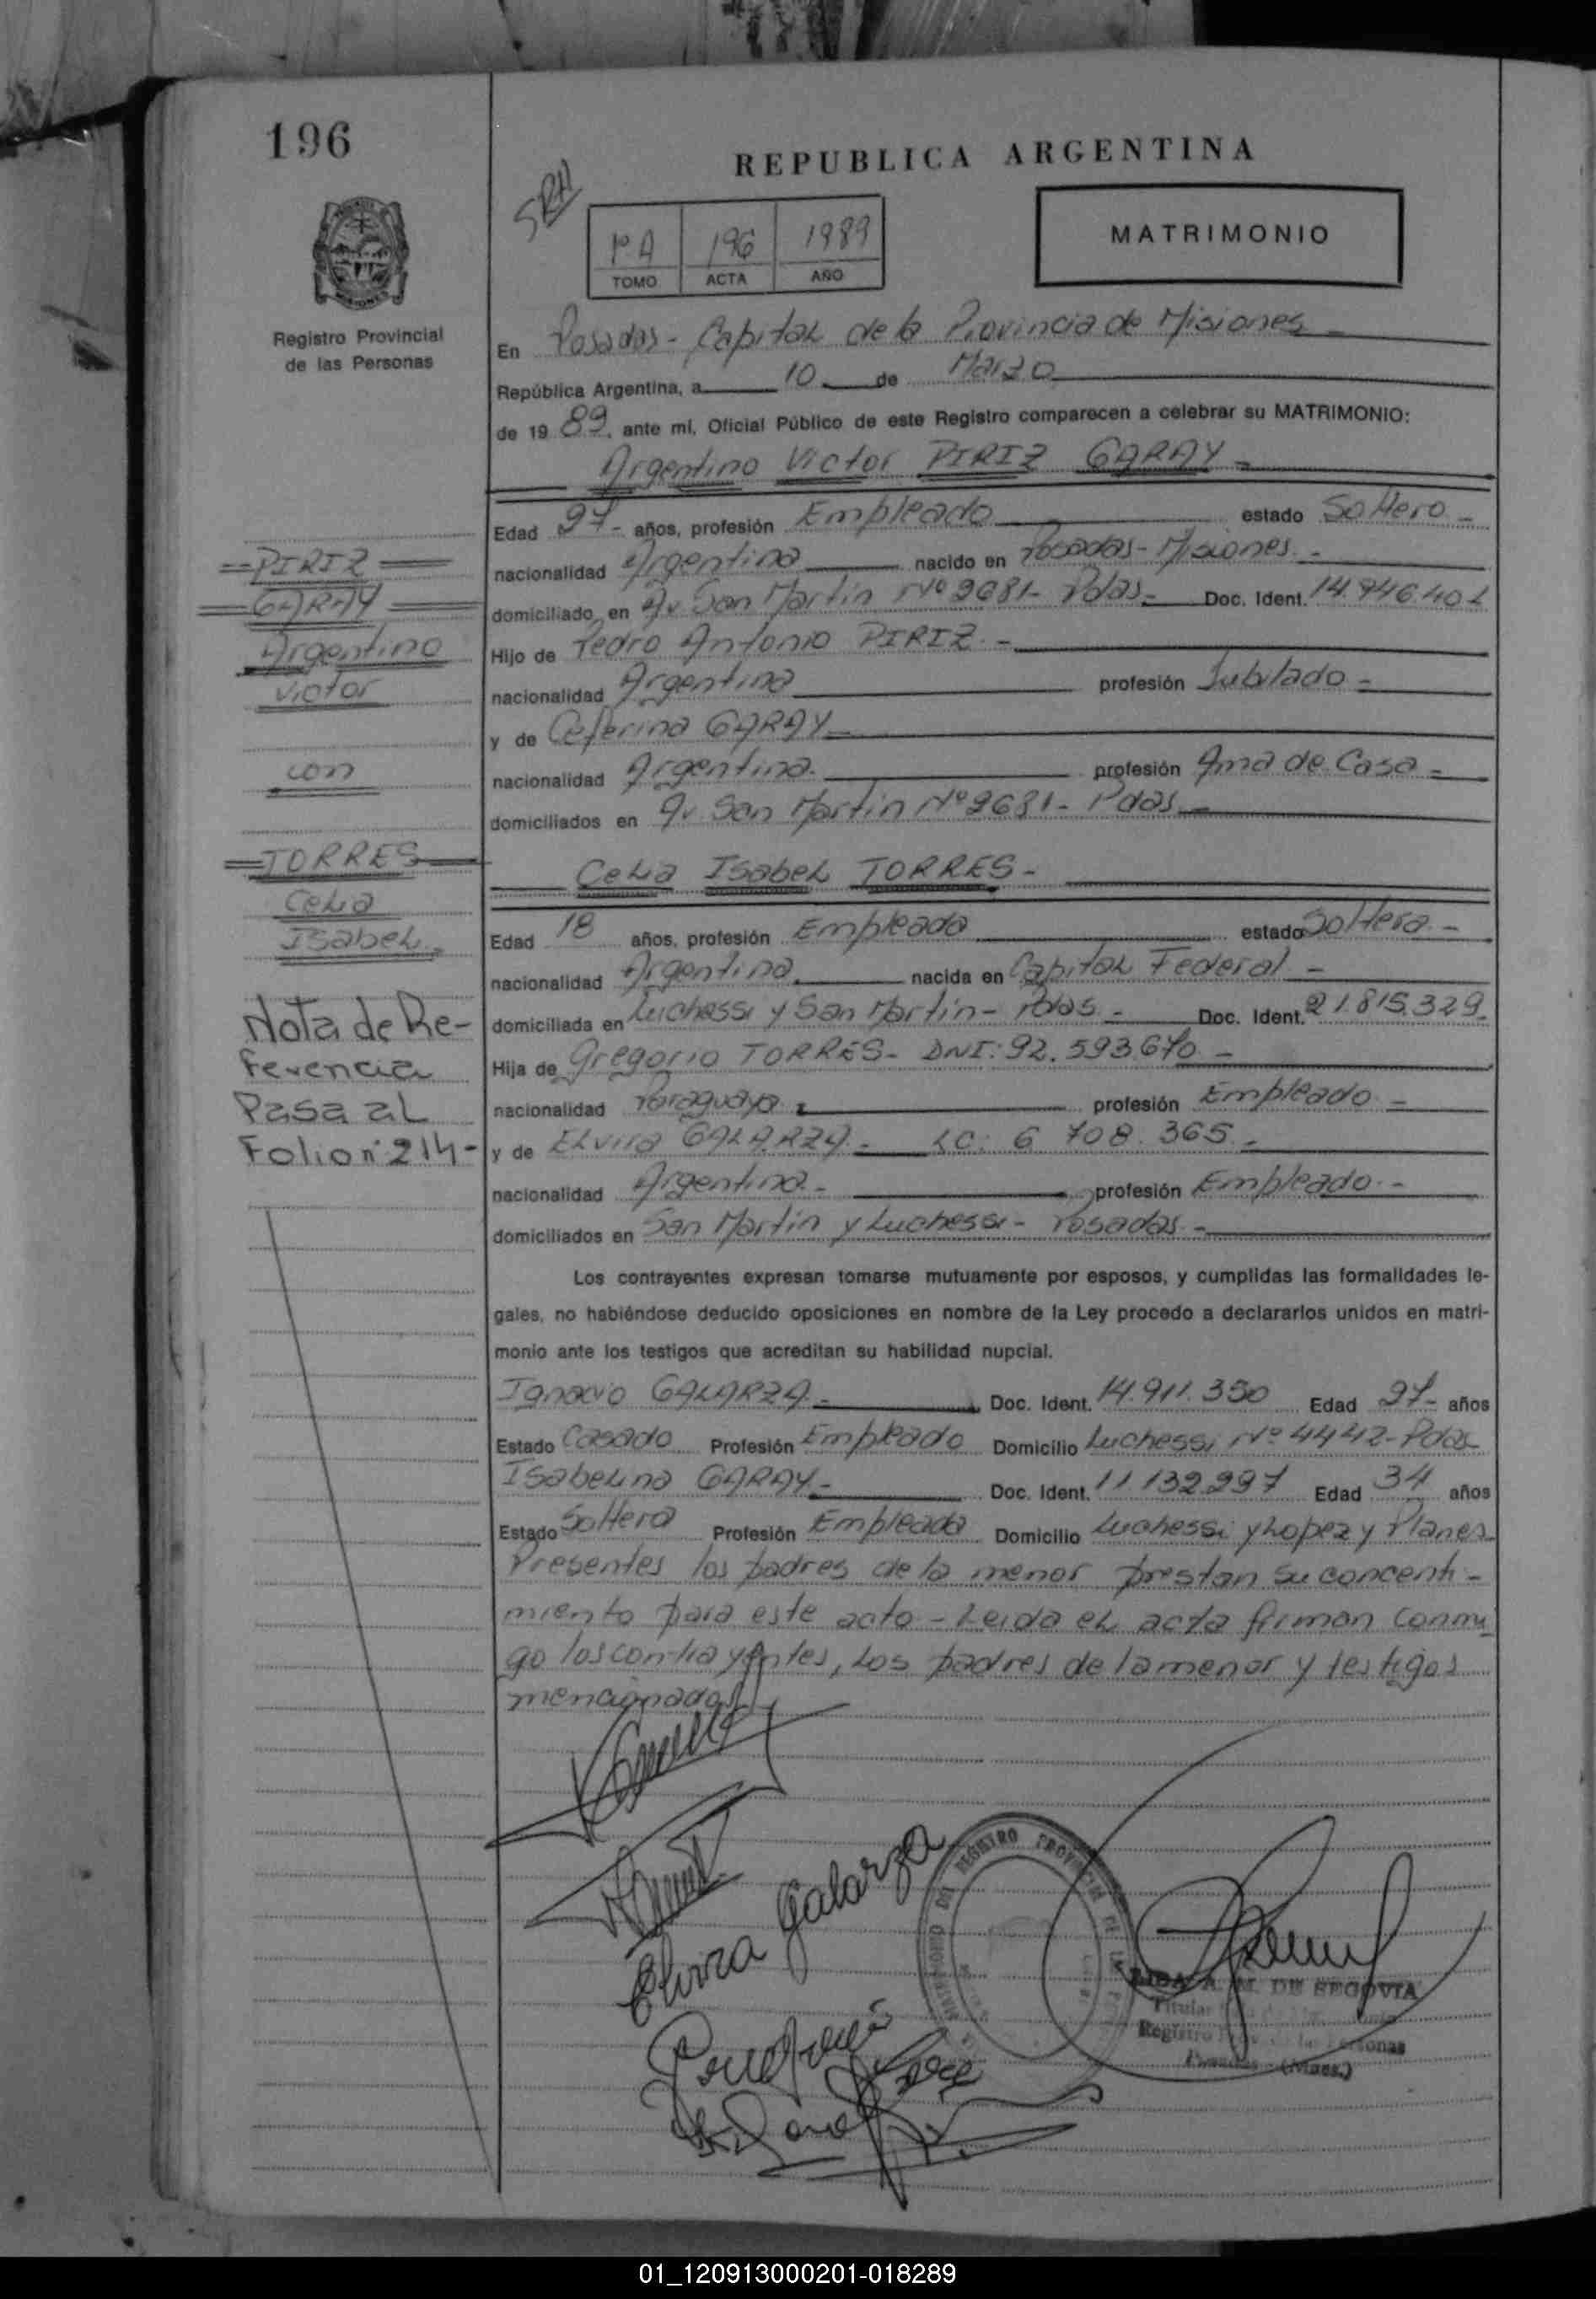 196
REPUBLICA ARGENTINA
SRH
1º A 196 1989
TOMO ACTA AÑO
MATRIMONIO
Registro Provincial
de las Personas
En Posadas - Capital de la Provincia de Misiones -
República Argentina, a 10 de Marzo
de 19 89, ante mí, Oficial Público de este Registro comparecen a celebrar su MATRIMONIO:
Argentino Victor PIRIZ GARAY -
Edad 27 - años, profesión Empleado estado Soltero -
nacionalidad Argentina nacido en Posadas - Misiones -
domiciliado en Av. San Martin Nº 2681 - Pdas - Doc. Ident. 14.946.401
Hijo de Pedro Antonio PIRIZ -
nacionalidad Argentina profesión Jubilado -
y de Ceferina GARAY -
nacionalidad Argentina. profesión Ama de Casa -
domiciliados en Av. San Martin Nº 2681 - Pdas -
Celia Isabel TORRES -
Edad 18 años, profesión Empleada estado Soltera -
nacionalidad Argentina nacida en Capital Federal -
domiciliada en Luchessi y San Martin - Pdas - Doc. Ident. 21.815.329 -
Hija de Gregorio TORRES - DNI: 92.593.670 -
nacionalidad Paraguaya profesión Empleado -
y de Elvira GALARZA - LC: 6 708.365 -
nacionalidad Argentina - profesión Empleado -
domiciliados en San Martin y Luchessi - Posadas -
Los contrayentes expresan tomarse mutuamente por esposos, y cumplidas las formalidades le-
gales, no habiéndose deducido oposiciones en nombre de la Ley procedo a declararlos unidos en matri-
monio ante los testigos que acreditan su habilidad nupcial.
Ignacio GALARZA - Doc. Ident. 14.911.350 Edad 27 - años
Estado Casado Profesión Empleado Domicilio Luchessi Nº 4442 - Pdas
Isabelina GARAY - Doc. Ident. 11.132.297 Edad 34 años
Estado Soltera Profesión Empleada Domicilio Luchessi y Lopez y Planes -
Presentes los padres de la menor prestan su concenti-
miento para este acto - Leida el acta firman conmi
go los contrayentes, los padres de la menor y testigos
mencionados
PIRIZ
GARAY
Argentino
Victor
con
TORRES
Celia
Isabel -
Nota de Re-
ferencia
Pasa al
Folio nº 214 -
Elvira Galarza
DEL REGISTRO PROVINCIAL DE LAS
A. M. DE SEGOVIA
Titular
Registro Personas
Posadas - (Mnes.)
01_120913000201-018289